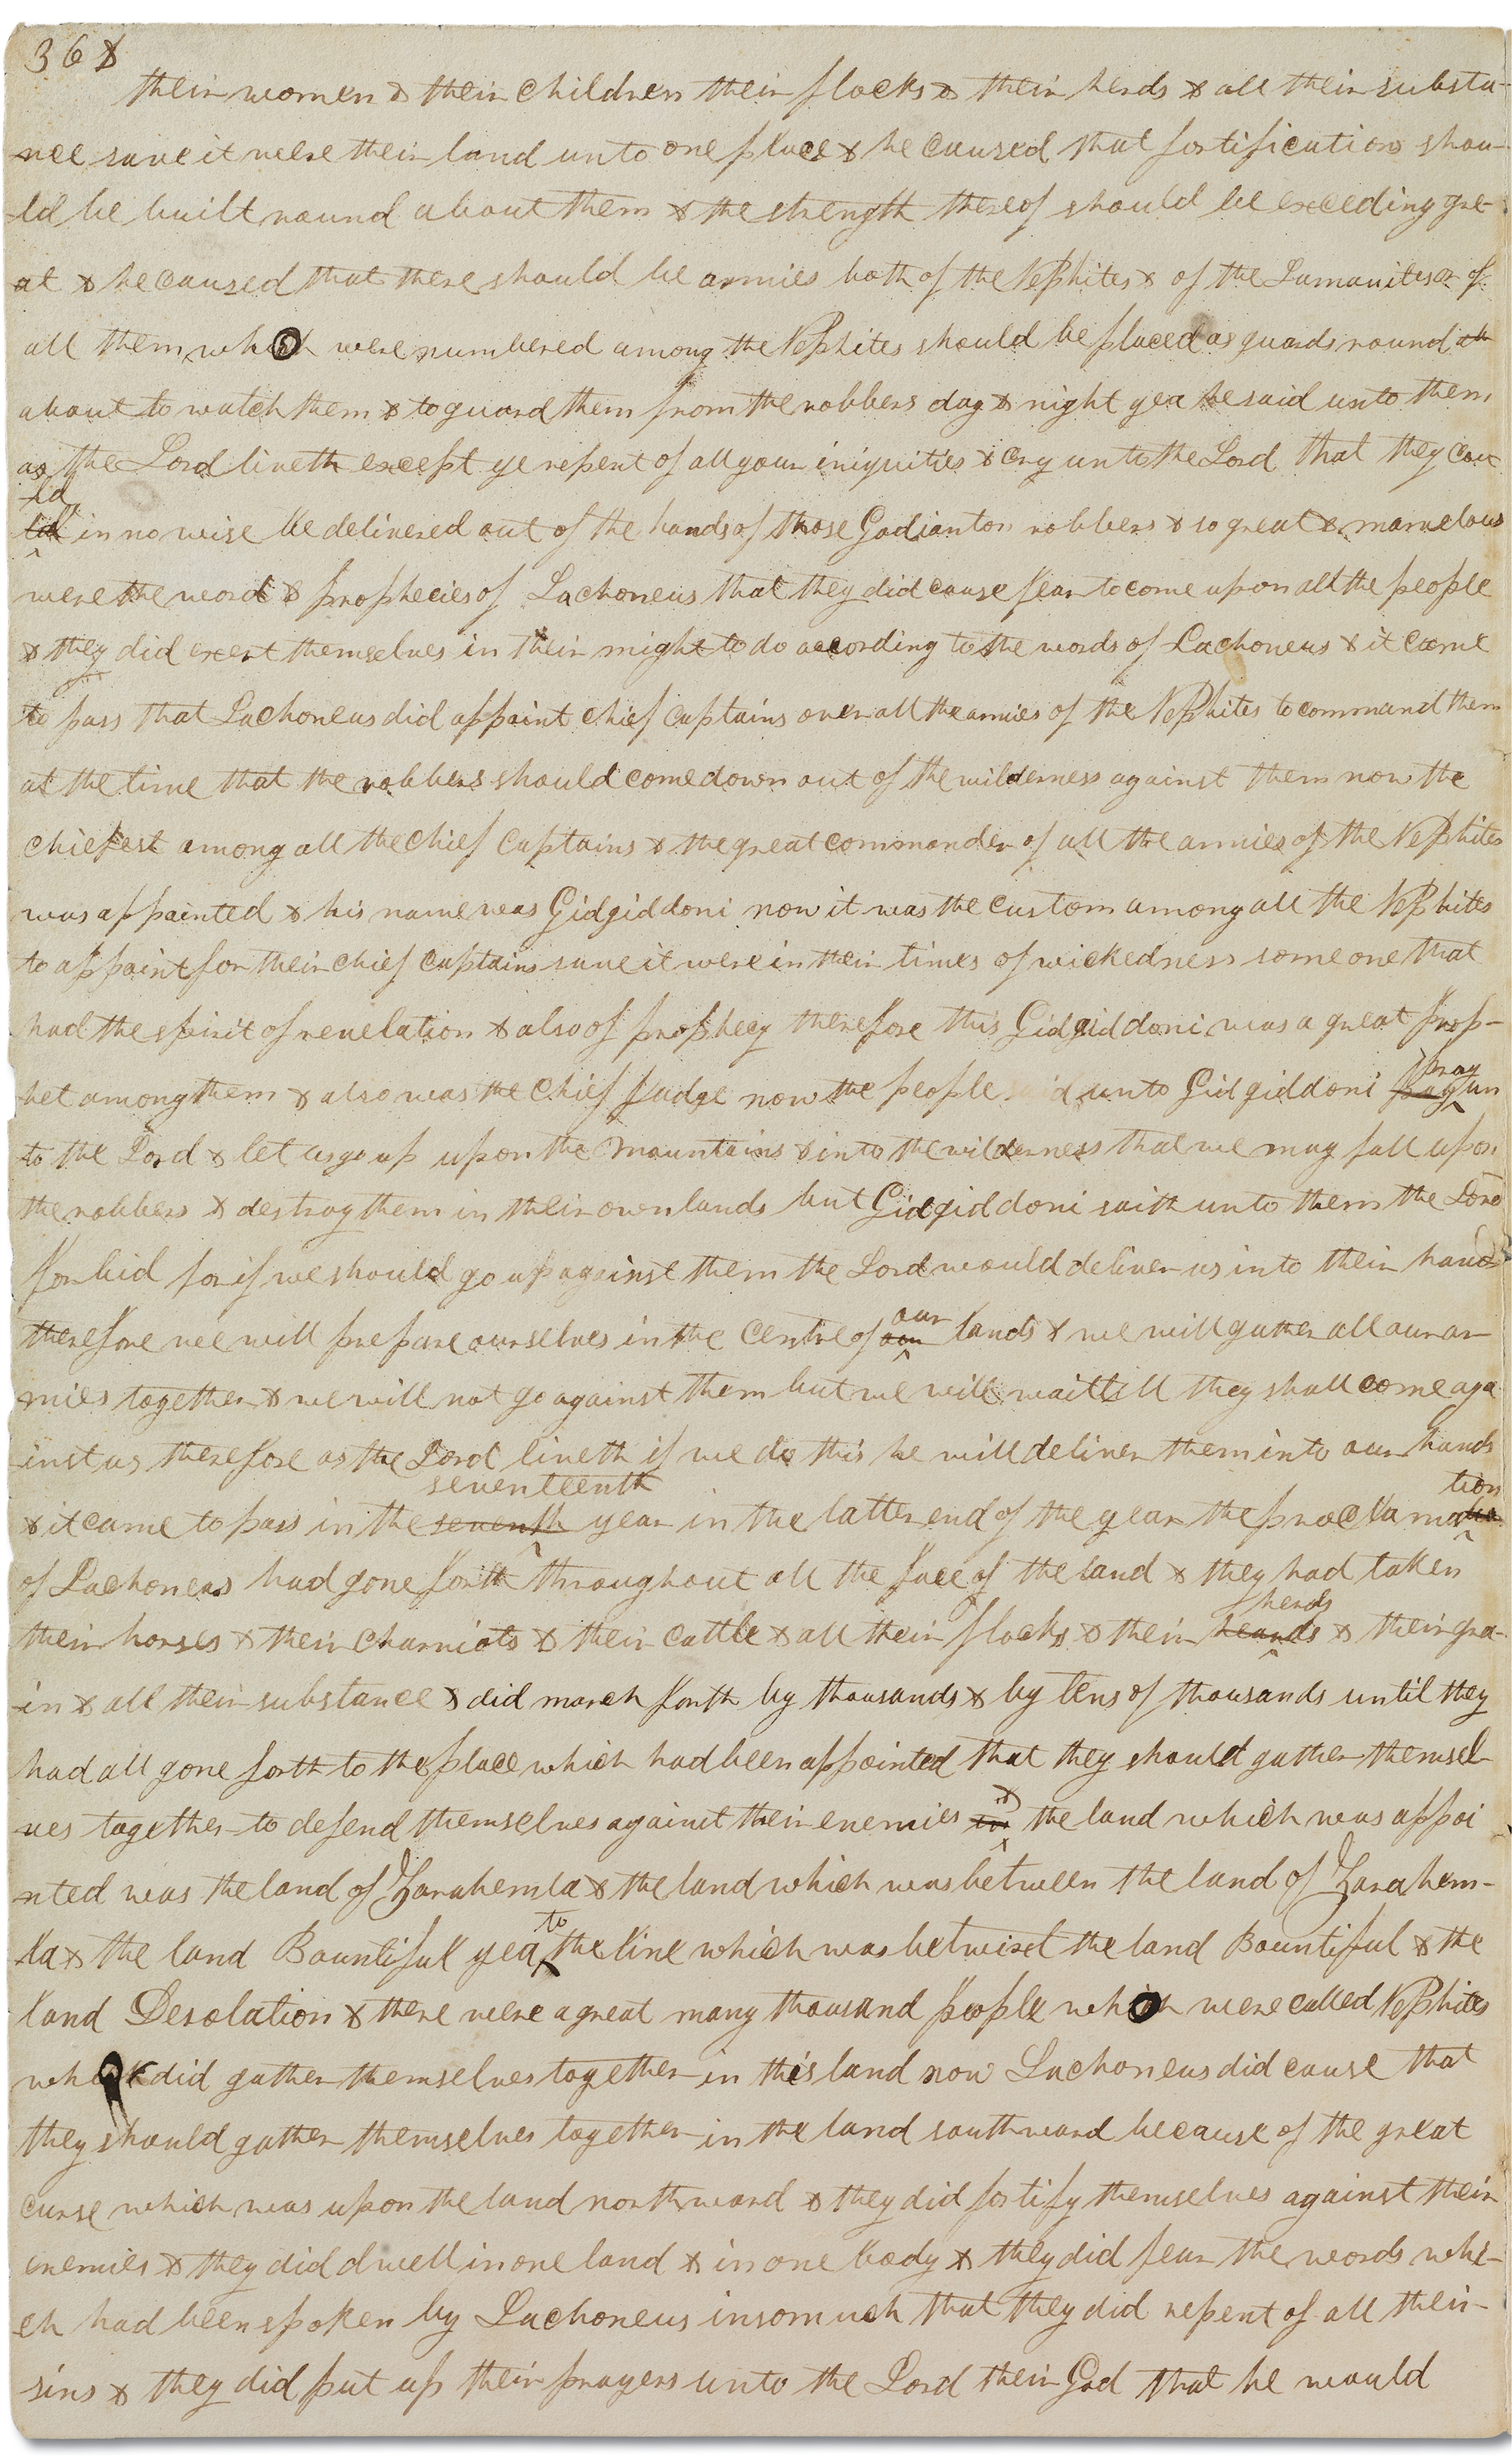 36&
their women & their children their flocks & their herds & all their substa-
nce save it were their land unto one place & he caused that fortifications shou-
ld be built round about them & the strength thereof should be exceeding gre-
at & he caused that there should be armies both of the Nephites & of the Lamanites or of
all them who were numbered among the Nephites should be placed as guards round
about to watch them & to guard them from the robbers day & night yea he said unto them
as the Lord liveth except ye repent of all your iniquities & cry unto the Lord that they cou
ld
ld in no wise be delivered out of the hands of those Gadianton robbers & so great & marvelous
were the word & prophecies of Lachoneus that they did cause fear to come upon all the people
& they did exert themselves in their might to do according to the words of Lachoneus & it came
to pass that Lachoneus did appoint chief captains over all the armies of the Nephites to command them
at the time that the robbers should come down out of the wilderness against them now the
chiefest among all the chief captains & the great commander of all the armies of the Nephites
was appointed & his name was Gidgiddoni now it was the custom among all the Nephites
to appoint for their chief captains save it were in their times of wickedness some one that
had the spirit of revelation & also of prophecy therefore this Gidgiddoni was a great prop-
het among them & also was the chief Judge now the people said unto Gidgiddoni pray un
pray
to the Lord & let us go up upon the mountains & into the wilderness that we may fall upon
the robbers & destroy them in their own lands but Gidgiddoni saith unto them the Lord
forbid for if we should go up against them the Lord would deliver us into their hands
therefore we will prepare ourselves in the centre of our lands & we will gather all our ar
our
mies together & we will not go against them but we will wait till they shall come aga
inst us therefore as the Lord liveth if we do this he will deliver them into our hands
seventeenth tion
& it came to pass in the seventh year in the latter end of the year the proclama
of Lachoneus had gone forth throughout all the face of the land & they had taken
herds
their horses & their charriots & their cattle & all their flocks & their heards & their gra-
in & all their substance & did march forth by thousands & by tens of thousands until they
had all gone forth to the place which had been appointed that they should gather themsel
ves together to defend themselves against their enemies & the land which was appoi
nted was the land of Zarahemla & the land which was between the land of Zarahem-
to
la & the land Bountiful yea the line which was betwixt the land Bountiful & the
land Desolation & there were a great many thousand people who were called Nephites
who did gather themselves together in this land now Lachoneus did cause that
they should gather themselves together in the land southward because of the great
curse which was upon the land northward & they did fortify themselves against their
enemies & they did dwell in one land & in one body & they did fear the words whi-
ch had been spoken by Lachoneus insomuch that they did repent of all their
sins & they did put up their prayers unto the Lord their God that he would